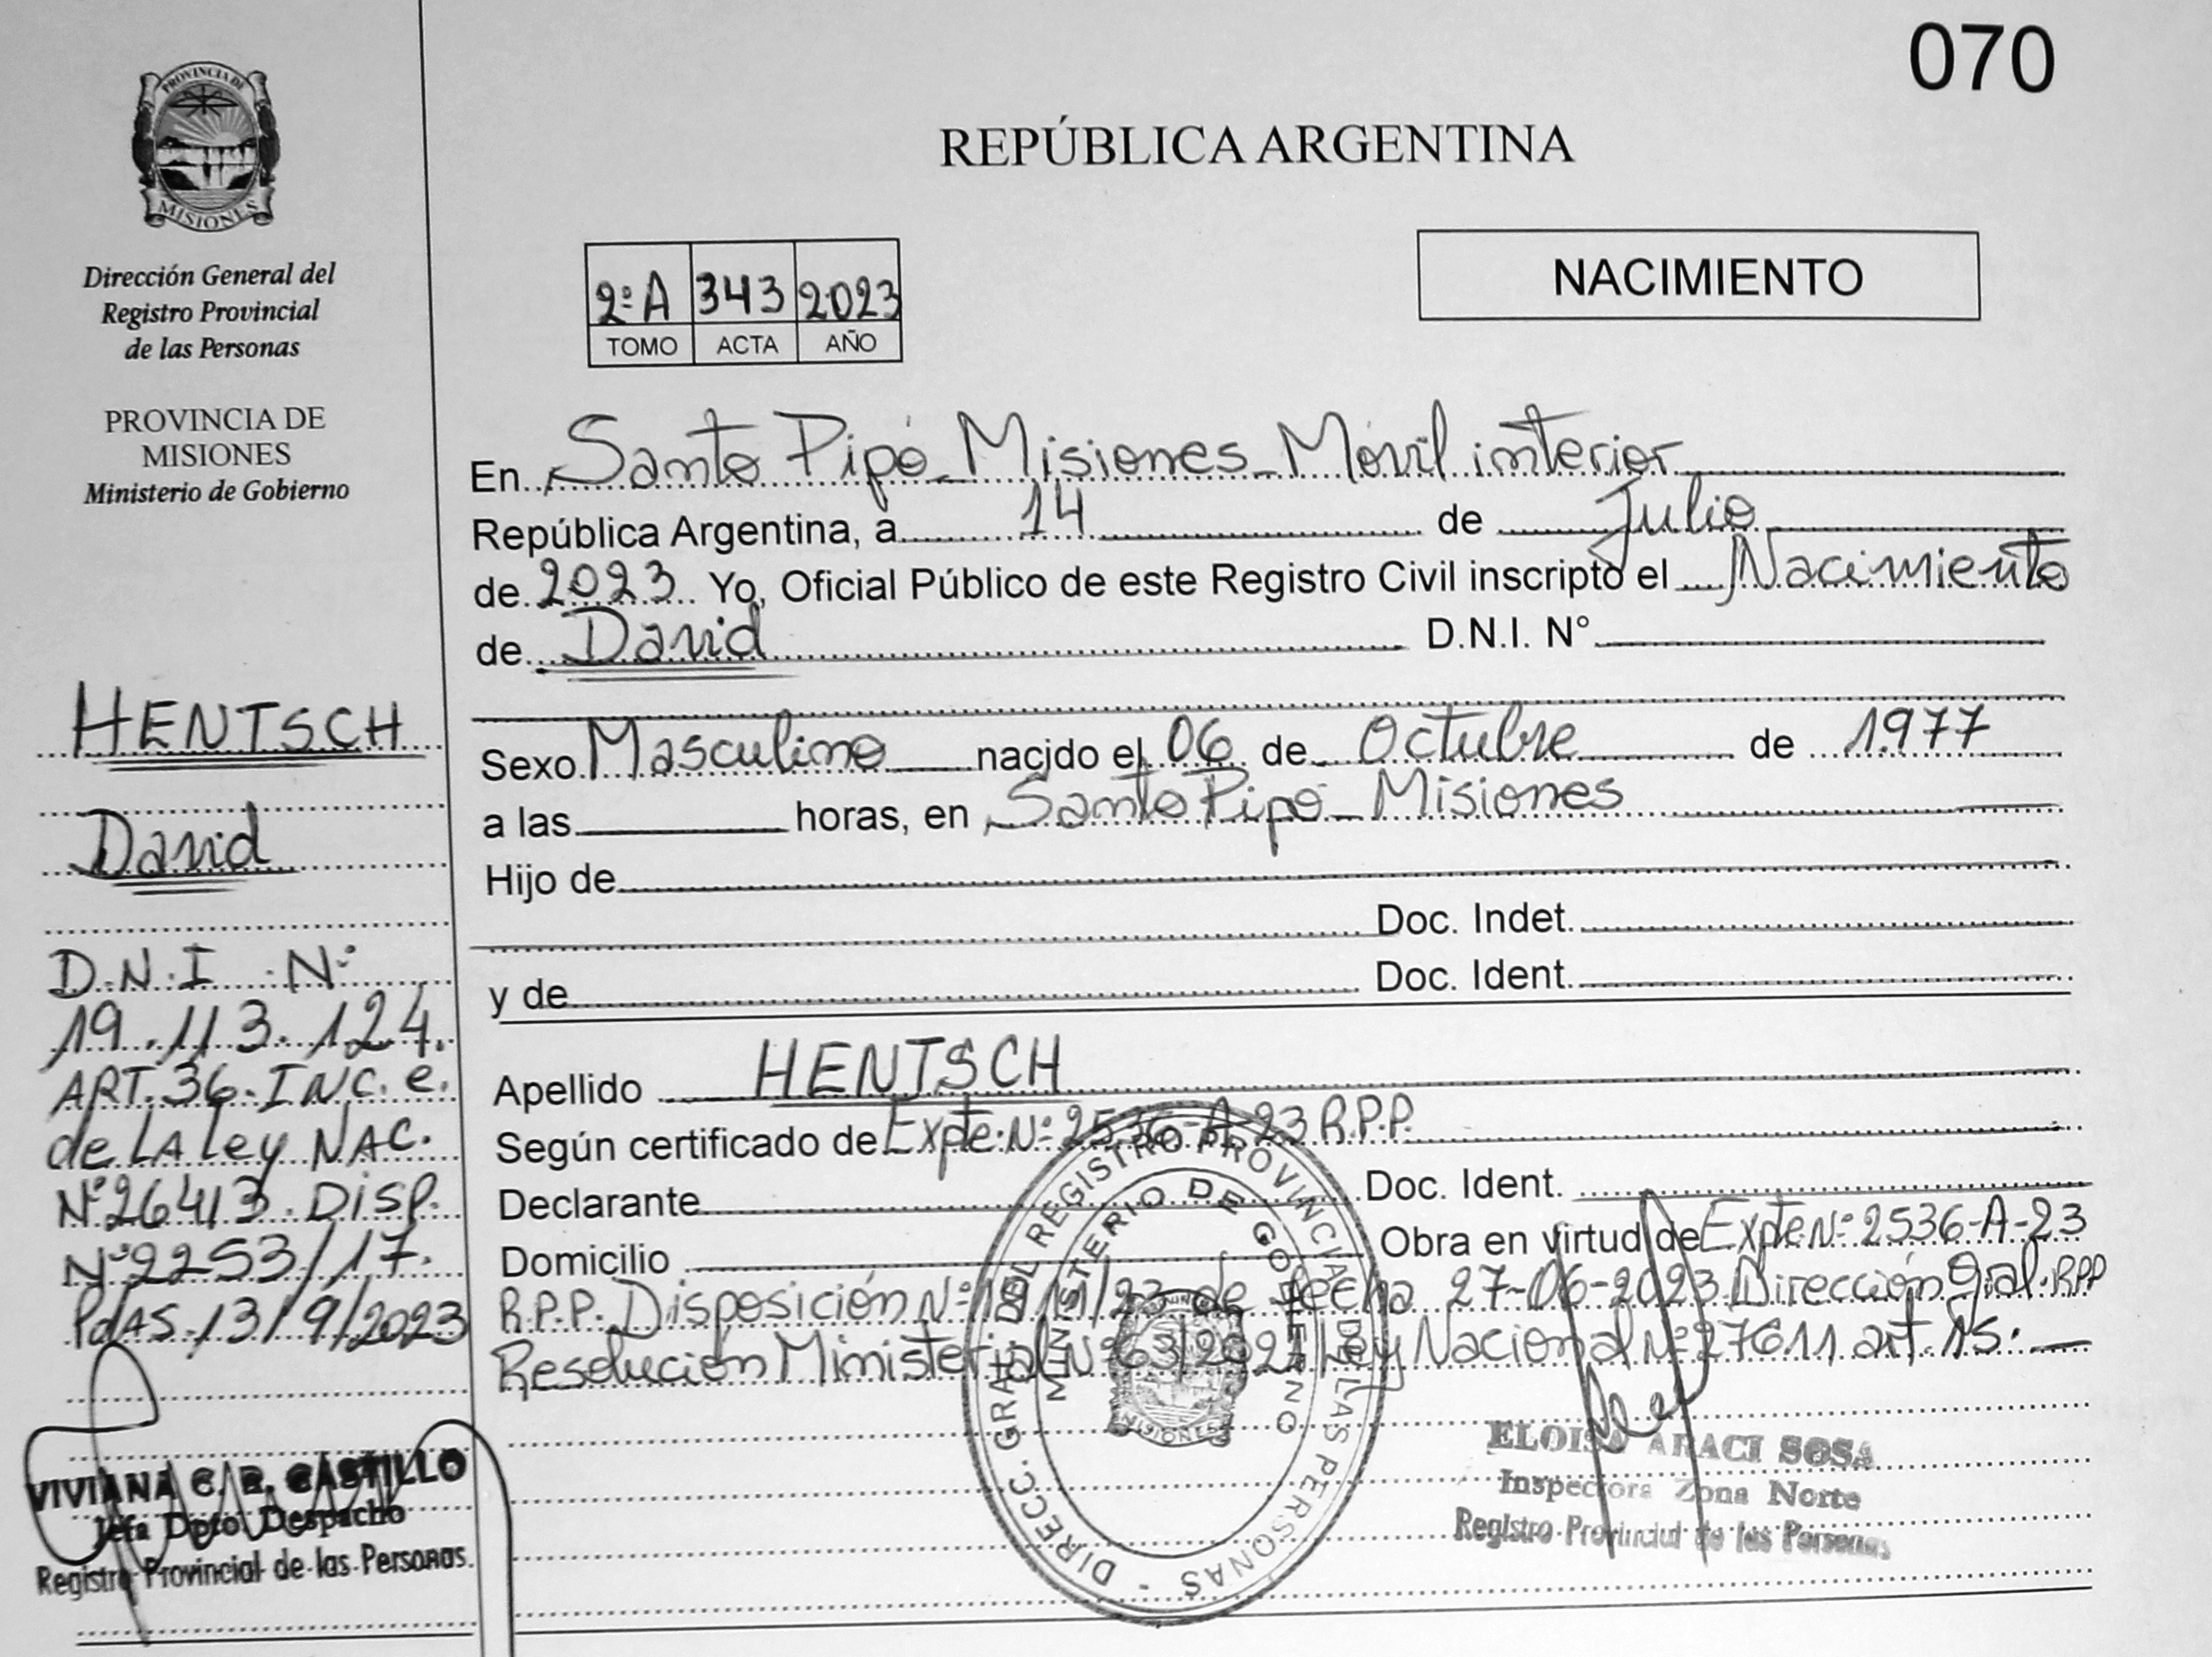 070
PROVINCIA DE
MISIONES
Dirección General del
Registro Provincial
de las Personas
PROVINCIA DE
MISIONES
Ministerio de Gobierno
REPÚBLICA ARGENTINA
NACIMIENTO
2º A 343 2023
TOMO ACTA AÑO
En Santo Pipó - Misiones - Móvil interior
República Argentina, a 14 de Julio
de 2023 Yo, Oficial Público de este Registro Civil inscripto el Nacimiento
de David D.N.I. N°
Sexo Masculino nacido el 06 de Octubre de 1.977
a las horas, en Santo Pipó - Misiones
Hijo de
Doc. Indet.
y de Doc. Ident.
Apellido HENTSCH
Según certificado de Expte. Nº 2536-A-23 R.P.P.
Declarante Doc. Ident.
Domicilio Obra en virtud de Expte Nº 2536-A-23
R.P.P. Disposición Nº /23 de fecha 27-06-2023 Dirección Gral. RPP
Resolución Ministerial Nº 63/2021 Ley Nacional Nº 27611 art. 15.
HENTSCH
David
D.N.I. Nº
19.113.124.
ART. 36. INC. e.
de LA Ley NAC.
Nº 26413. DISP.
Nº 2253/17.
PdAS. 13/9/2023
VIVIANA C. R. CASTILLO
Jefa Dpto Despacho
Registro Provincial de las Personas
DIRECC. GRAL. DEL REGISTRO PROVINCIAL DE LAS PERSONAS -
MINISTERIO DE GOBIERNO
MISIONES
ELOISA ARACI SOSA
Inspectora Zona Norte
Registro Provincial de las Personas